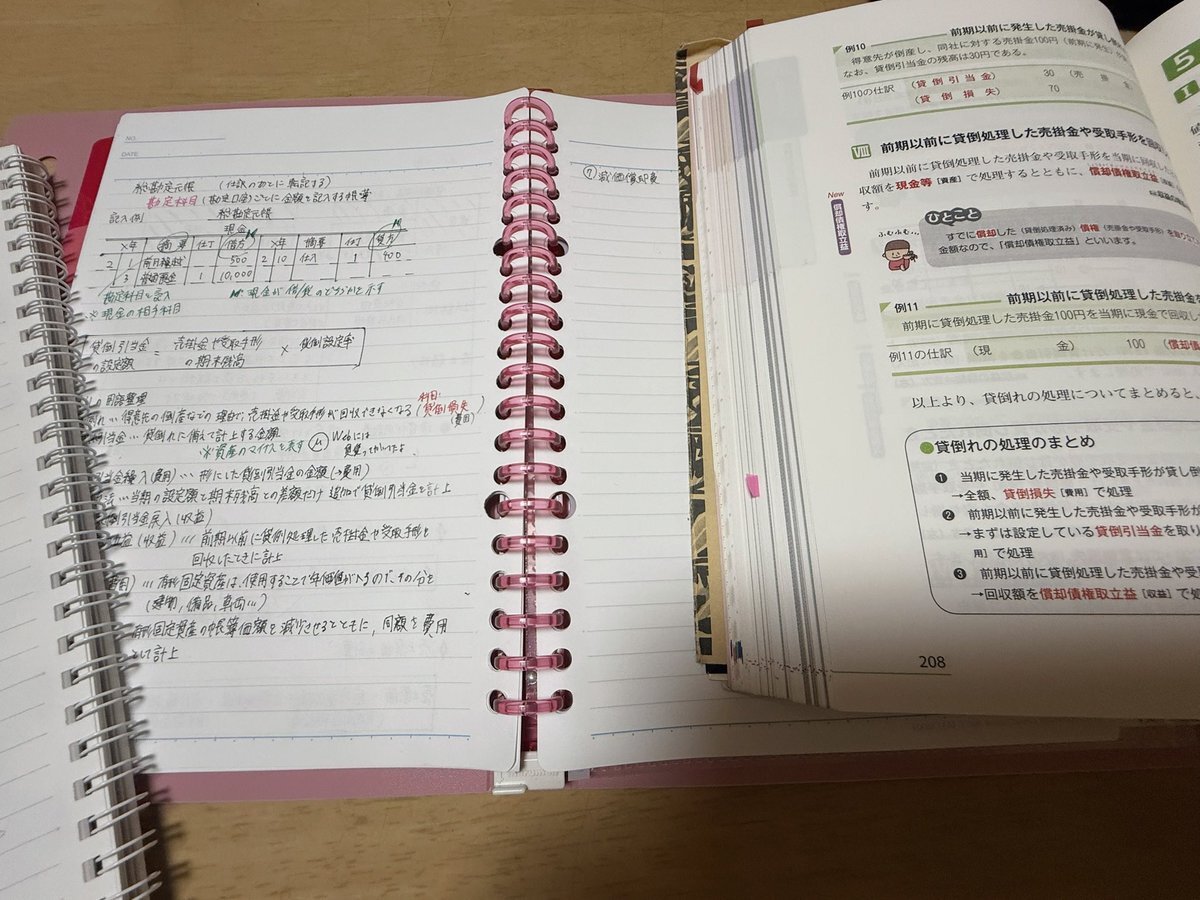 NO.
DATE
総勘定元帳 (仕訳のあとに転記する)
勘定科目(勘定口座)ごとに金額を記入する帳簿
記入例 総勘定元帳
現金
×年 摘要 仕丁 借方 ×年 摘要 仕丁 貸方
2 1 前月繰越 500 2 10 仕入 1 400
3 1 10,000
勘定科目を記入
※現金の相手科目
現金が借/貸のどちらかを示す
貸倒引当金の設定額 = 売掛金や受取手形の期末残高 × 貸倒設定率
の用語整理
れ…得意先の倒産などの理由で、売掛金や受取手形が回収できなくなる(科目:貸倒損失(費用))
当金…貸倒れに備えて計上する金額
※資産のマイナスを表す Webには
引当金繰入(費用)… 形にした貸倒引当金の金額(→費用)
…当期の設定額と期末残高との差額だけ追加で貸倒引当金を計上
倒引当金戻入(収益)
益(収益)… 前期以前に貸倒処理した売掛金や受取手形を
回収したときに計上
費用)… 有形固定資産は、使用することで年々価値が入るのでその分を
(建物, 備品, 車両…)
有形固定資産の帳簿価額を減少させるとともに, 同額を費用
として計上
⑦ 減価償却費
例10 前期以前に発生した売掛金が貸し倒
得意先が倒産し、同社に対する売掛金100円(前期に発生)が
なお、貸倒引当金の残高は30円である。
例10の仕訳 (貸倒引当金) 30 (売 掛
(貸 倒 損 失) 70
VIII 前期以前に貸倒処理した売掛金や受取手形を回収
前期以前に貸倒処理した売掛金や受取手形を当期に回収し
収額を現金等[資産]で処理するとともに、償却債権取立益
す。
New
償却債権取立益
ふむふむ…
ひとこと
すでに償却した(貸倒処理済み)債権(売掛金や受取手形)を取り
金額なので、「償却債権取立益」といいます。
例11 前期以前に貸倒処理した売掛金を
前期に貸倒処理した売掛金100円を当期に現金で回収し
例11の仕訳 (現 金) 100 (償却債
以上より、貸倒れの処理についてまとめると、
貸倒れの処理のまとめ
❶ 当期に発生した売掛金や受取手形が貸し倒
→全額、貸倒損失[費用]で処理
❷ 前期以前に発生した売掛金や受取手形が
→まずは設定している貸倒引当金を取り
用]で処理
❸ 前期以前に貸倒処理した売掛金や受
→回収額を償却債権取立益[収益]で処
208
5
I